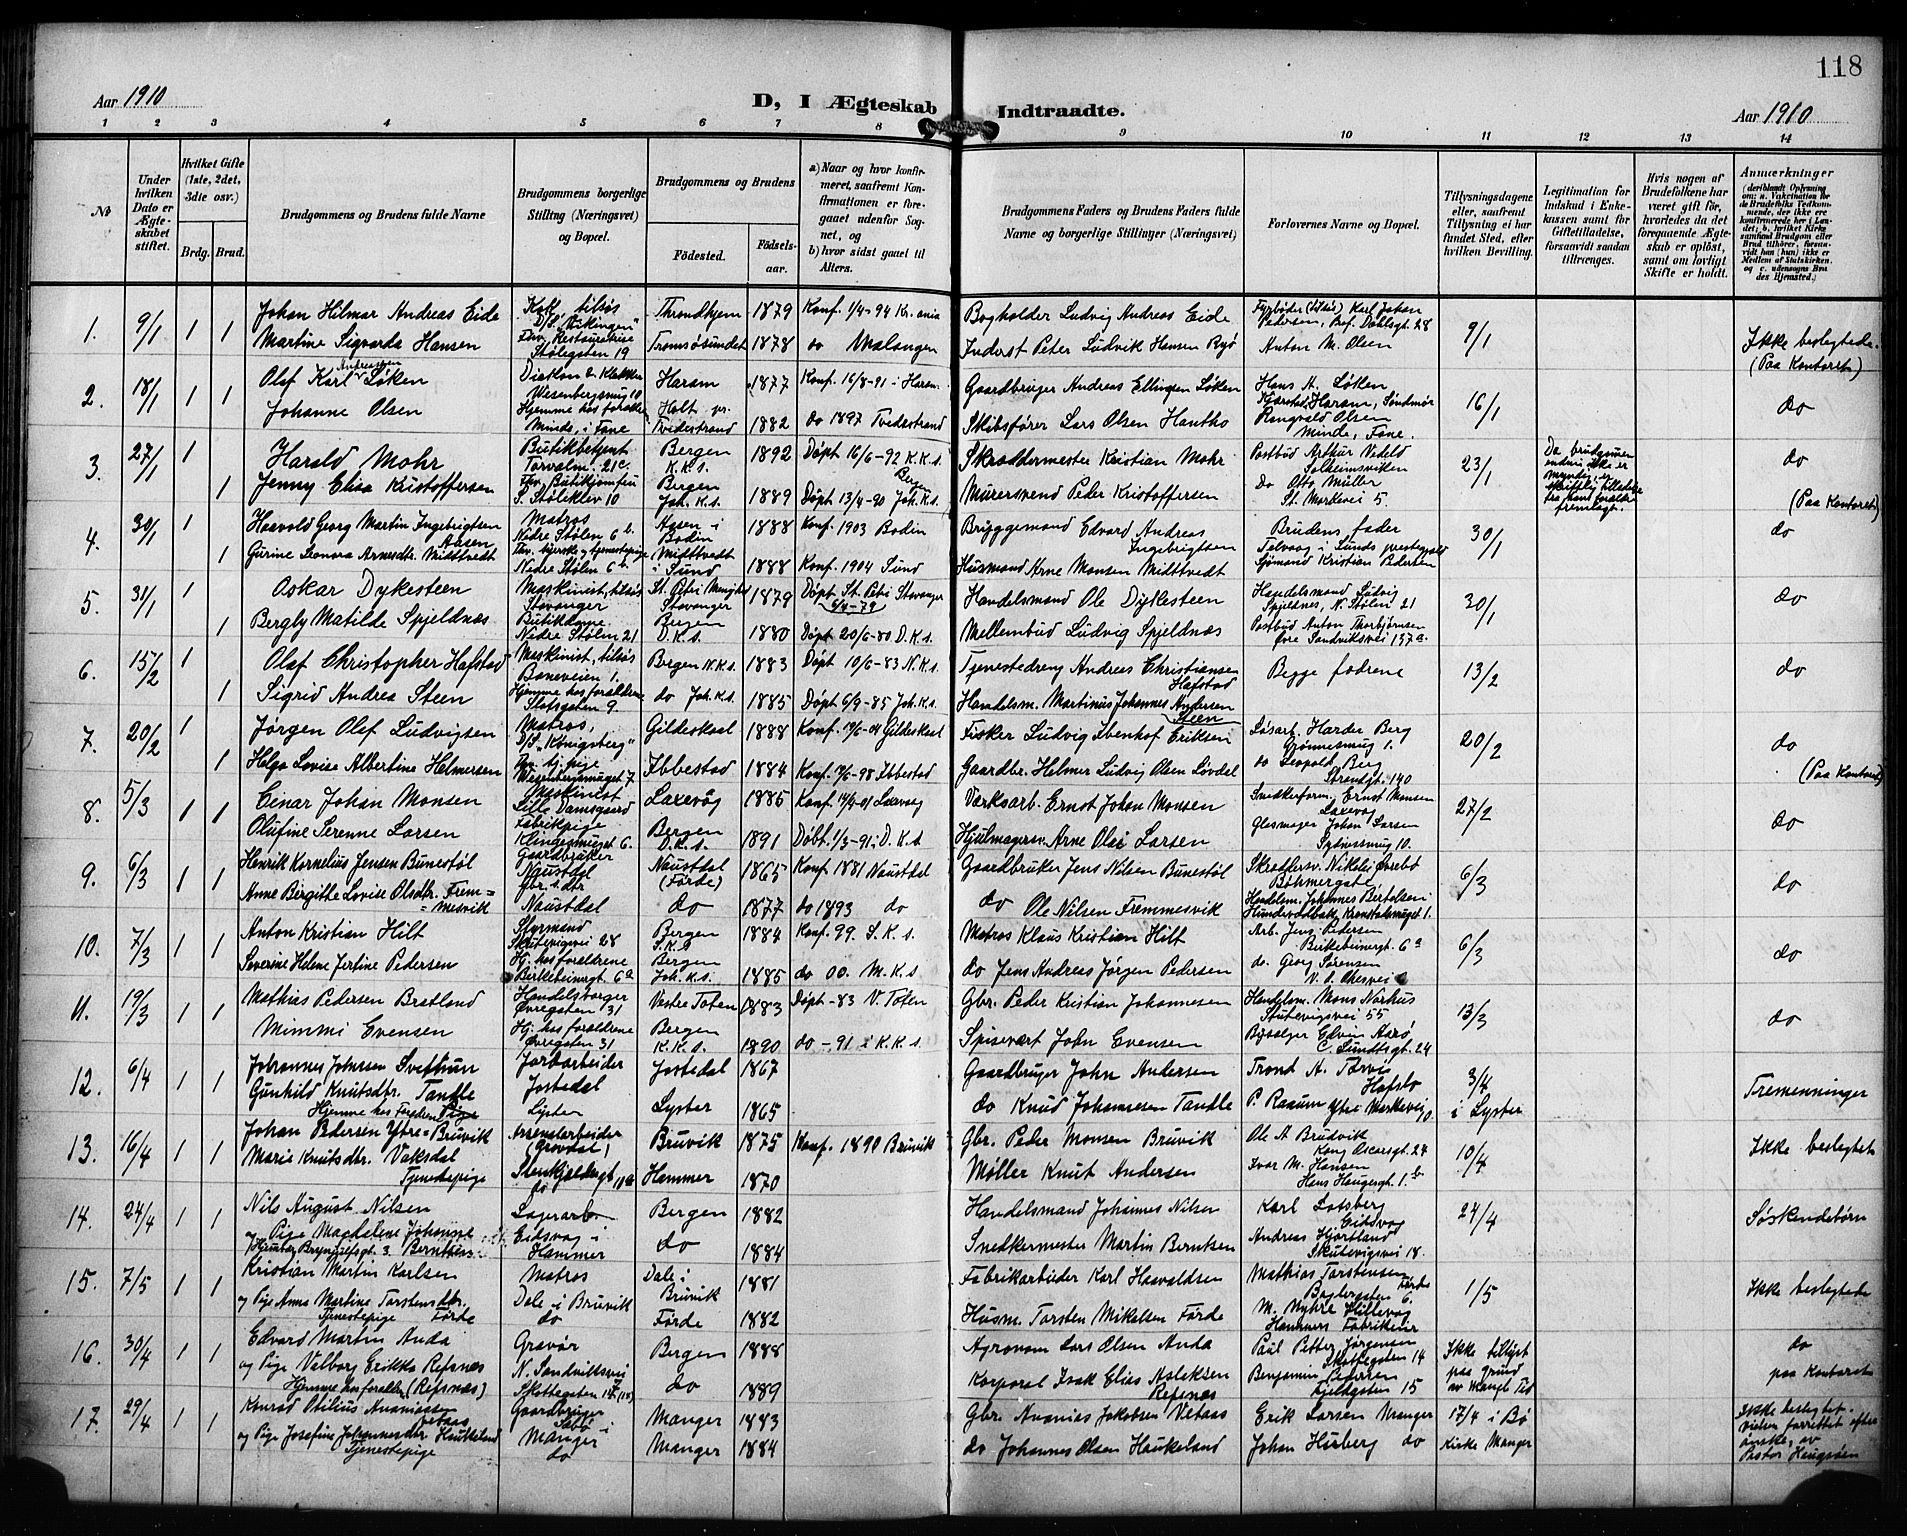 118
Aar 1910
D, I Ægteskab Indtraadte.
Aar 1910
1 2 3 4 5 6 7 8 9 10 11 12 13 14
No
Under hvilken Dato er Ægteskabet stiftet.
Hvilket Gifte (1ste, 2det, 3die osv.)
Brdg. Brud.
Brudgommens og Brudens fulde Navne
Brudgommens borgerlige Stilling (Næringsvei) og Bopæl.
Brudgommens og Brudens
Fødested.
Fødselsaar.
a) Naar og hvor konfirmeret, saafremt Konfirmationen er foregaaet udenfor Sognet, og
b) hvor sidst gaaet til Alters.
Brudgommens Faders og Brudens Faders fulde Navne og borgerlige Stillinger (Næringsvei)
Forlovernes Navne og Bopæl.
Tillysningsdagene eller, saafremt Tillysning ei har fundet Sted, efter hvilken Bevilling.
Legitimation for Indskud i Enkekassen samt for Giftetilladelse, forsaavidt saadan tiltrænges.
Hvis nogen af Brudefolkene har været gift før, hvorledes da det foregaaende Ægteskab er opløst, samt om lovligt Skifte er holdt.
Anmærkninger
1. 9/1 1 1 Johan Hilmar Andreas Eide
Kok, tilsøs D/S "Vikingen" Throndhjem 1879 Konf. 1/4-94 Kr.ania
Bogholder Ludvig Andreas Eide
Fyrbøder (tilsøs) Karl Johan Pedersen, Prof. Dahlsgt. 28
9/1
Ikke beslegtede. (Paa Kontoret)
Martine Sigvarda Hansen
Fhv. Restauratrise Stølegaten 19 Tromsøsundet 1878 do Malangen
Inderst Peter Ludvik Hansen Ryø
Anton M. Olsen
2. 18/1 1 1 Olaf Karl Andreassen Løken
Diakon Wesenbergsmug 10 Haram 1877 Konf. 16/8-91 i Haram
Gaardbruger Andreas Ellingsen Løken
Hans A. Løken Haram, Søndmør
16/1
do
Johanne Olsen
Hjemme hos foraldre Minde, i Fane Holt pr. Tvedestrand 1882 do 1897 Tvedestrand
Skibsfører Lars Olsen Hantho
Rangvald Olsen Minde, Fane.
3. 27/1 1 Harald Mohr
Butikbetjent Torvalm. 21c Bergen K.K.s. 1892 Døpt 16/6-92 K.K.s.
Skræddermester Kristian Mohr
Postbud Arthur Vedeld Solheimsviken
23/1
Da brudgommen endnu ikke er myndig, er skriftlig tilladelse fra hans forældre fremlagt.
do (Paa Kontoret)
1 Jenny Elisa Kristoffersen
Fhv. Butikjomfru S. Støleklev 10 Bergen Joh. K.s. 1889 Døpt 13/4-90 Joh.K.s.
Murersvend Peder Kristoffersen
Do Otto Müller St. Markevei 5.
4. 30/1 1 Haavold Georg Martin Ingebrigtsen Aasen
Matros Nedre Stølen 6b Aasen i Bodin 1888 Konf. 1903 Bodin
Bryggemand Edvard Andreas Ingebrigtsen
Brudens fader Telvaag i Sunds prestegjæld
30/1
do
1 Gurine Leonora Arnesdtr. Midttvedt
Fhv. syerske og tjenestepige Nedre Stølen 6b Midttvedt i Sund 1888 Konf. 1904 Sund
Husmand Arne Monsen Midttvedt
Sjømand Kristian Pedersen
5. 31/1 1 Oskar Dykesteen
Maskinist, tilsøs Stavanger St. Petri Menighed Stavanger 1879 Døpt St. Petri Stavanger 6/4-79
Handelsmand Ole Dykesteen
Handelsmand Ludvig Spjeldnæs, N. Stølen 21
30/1
do
1 Bergly Matilde Spjeldnæs
Butikdame Nedre Stølen 21 Bergen D.K.s. 1880 Døpt 20/6-80 D.K.s.
Mellembud Ludvig Spjeldnæs
Postbud Anton Thorbjørnsen Øvre Sandviksvei 137a
6. 15/2 1 Olaf Christopher Hafstad
Maskinist, tilsøs Baneveien 1. Bergen N.K.s. 1883 Døpt 10/6-83 N.K.s.
Tjenestedreng Andreas Christiansen Hafstad
Begge fædrene
13/2
do
1 Sigrid Andrea Steen
Hjemme hos foraldrene Slotsgaten 9. do Joh. K.s. 1885 Døpt 6/9-85 Joh.K.s.
Handelsm. Martinus Johannes Andersen Steen
7. 20/2 1 Jørgen Olaf Ludvigsen
Matros, D/S "Königsberg" Gildeskaal 1888 Konf. Gildeskaal
Fisker Ludvig Ibenhof Eriksen
Løsarb. Harder Berg Grønnesmug 1.
20/2
do (Paa Kontoret)
1 Helga Lovise Albertine Helmersen
Fhv. tj. pige Wesenbergsmuget 7 Ibbestad 1884 Konf. Ibbestad
Gaardbr. Helmer Ludvig Olsen Løvdal
do Leopold Berg Strandgt. 140
8. 5/3 1 1 Einar Johan Monsen
Maskinist Lille Damsgaard Laxevåg 1885 Konf. Laxevaag
Værksarb. Ernst Johan Monsen
Snedkerform. Ernst Monsen Laxevag
27/2
do
Olufine Serenne Larsen
Fabrikpige Klingesmuget 6. Bergen D.K.s. 1891 Døbt. 1/3-91 i D.K.s
Hjulmagersv. Arne Olai Larsen
Glasmager Johan Larsen Sydnesmug 10.
9. 6/3 1 1 Henrik Kornelius Jensen Bunestøl
Gaardbruker Naustdal Naustdal (Førde) 1865 Konf 1881 Naustdal
Gaardbruker Jens Nilsen Bunestøl
Skræddersv. Nikolai Øvrebø Böhmergate
6/3
do
Anne Birgitte Lovise Olsdtr. Fremmesvik
gbr.s. dtr Naustdal do 1877 do 1893 do
do Ole Nilsen Fremmesvik
Handelsm. Johannes Bertelsen
10. 7/3 1 1 Anton Kristian Hilt
Styrmand Skutevigsvei 28 Bergen S.K.s 1884 Konf. 99. S.K.s.
Matros Klaus Kristian Hilt
Arb. Jens Pedersen Birkebeinergt. 6a
6/3
do
Severine Helene Jertine Pedersen
Hj. hos foraldrene Berkebeinergt. 6a Bergen Joh.K.s. 1885 do 00. M.K.s
do Jens Andreas Jørgen Pedersen
do. Georg Sørensen
11. 19/3 1 1 Mathias Pedersen Bratland
Handelsborger Øvregaten 31 Vestre Toten 1883 Døpt -83 V. Toten
Gbr. Peder Kristian Johannesen
Handelsm. Mons Norhus Skutevigsvei 55
13/3
do
Mimmi Evensen
Hj. hos foraldrene Øvregaten 31 Bergen K.K.s. 1890 do -91 i K.K.s
Spisevært John Evensen
Edvin Aarø, C. Sundtsgt. 24
12. 6/4 1 1 Johannes Johnsen Svethun
Jordarbeider Jostedal Jostedal 1867
Gaardbruger John Andersen
Trond A. Tørvis Hafslo
3/4 i Lyster
Tremenninger
Gunhild Knutsdtr. Tandle Hjemme hos Forældre Pige
Lyster Lyster 1865
do Knud Johannesen Tandle
P. Raaum Ytre Markevei
13. 16/4 1 1 Johan Pedersen Ytre-Bruvik
Arsenalarbeider Bruvik 1875 Konf. 1890 Bruvik
Gbr. Peder Monsen Bruvik
Ole A Brudvik Kong Oscarsgt. 24
10/4
Ikke beslegtet
Marie Knutsdtr. Vaksdal Tjenestepige
do Hammer 1870
Møller Knut Andersen
Ivar M. Hansen Hans Haugesgt. 1b
14. 24/4 1 1 Nils August Nilsen
Lagerarb. Bergen 1882
Handelsmand Johannes Nilsen
Karl Lotsberg Eidsvag
24/4
Søskendebørn
og Pige Magdalene Johanne Berntsen
Eidsvag i Hammer do 1884
Snedkermester Martin Berntsen
Andreas Hjortland Skutevigsvei 18.
15. 7/5 1 1 Kristian Martin Karlsen
Matros Dale i Bruvik 1881
Fabrikarbeider Karl Haavaldsen
Mathias Torstensen Førde
1/5
Ikke beslegtede
og Pige Anna Martine Torstensdtr. Førde Tjenestepige
Dale i Bruvik do Førde 1882
Husm. Torsten Mikelsen Førde
M. Myhre
16. 30/4 1 1 Edvard Martin Anda
Gravør N. Sandviksvei Bergen 1888
Agronom Lars Olsen Anda
Paul Petter Jørgensen Skottegaten 14
Ikke tillyst paa grund av Mangl. Tid
do paa Kontoret
og Pige Valborg Erikka Refsnæs Hjemme hos forældre (Refsnæs)
Skottegaten do 1889
Korporal Isak Elias Aslaksen Refsnæs
Benjamin Pedersen Fjeldgaten 15
17. 29/4 1 1 Konrad Otilius Ananiassen Vetaas
Gaardbruger i Manger Manger 1883
Gbr. Ananias Jakobsen Vetaas
Erik Larsen Manger
17/4 i Bø Kirke Manger
Ikke beslegtet. Vielsen forrettet efter ønske, av Pastor Haugsøen
og Pige Josefine Johannesdtr Haukeland Tjenestepige
do Manger 1884
do Johannes Olsen Haukeland
Johan Husberg do